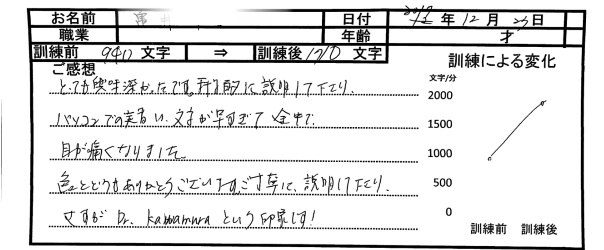 お名前 日付 2017年12月23日
職業 年齢 才
訓練前 940文字 ⇒ 訓練後1710文字
ご感想 訓練による変化
とても興味深かったです。親切に説明して下さり、
パソコンでの実習い、文字が早すぎて途中で、
目が痛くなりました。
色々とどうもありがとうございます。ご丁寧に、説明して下さり、
さすが Dr. Kawamura という印象です!
文字/分
2000
1500
1000
500
0
訓練前 訓練後